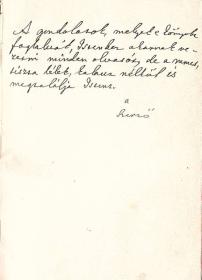 A gondolatok, melyet e könyvek
foglalnak, Istenhez akarnak ve-
zetni minden olvasót, de a nemes,
tiszta lélek, kalauz nélkül is
megtalálja Istent.
a
Szerző